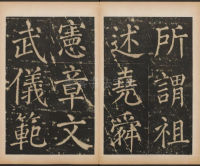 所謂祖
述堯舜
憲章文
武儀範